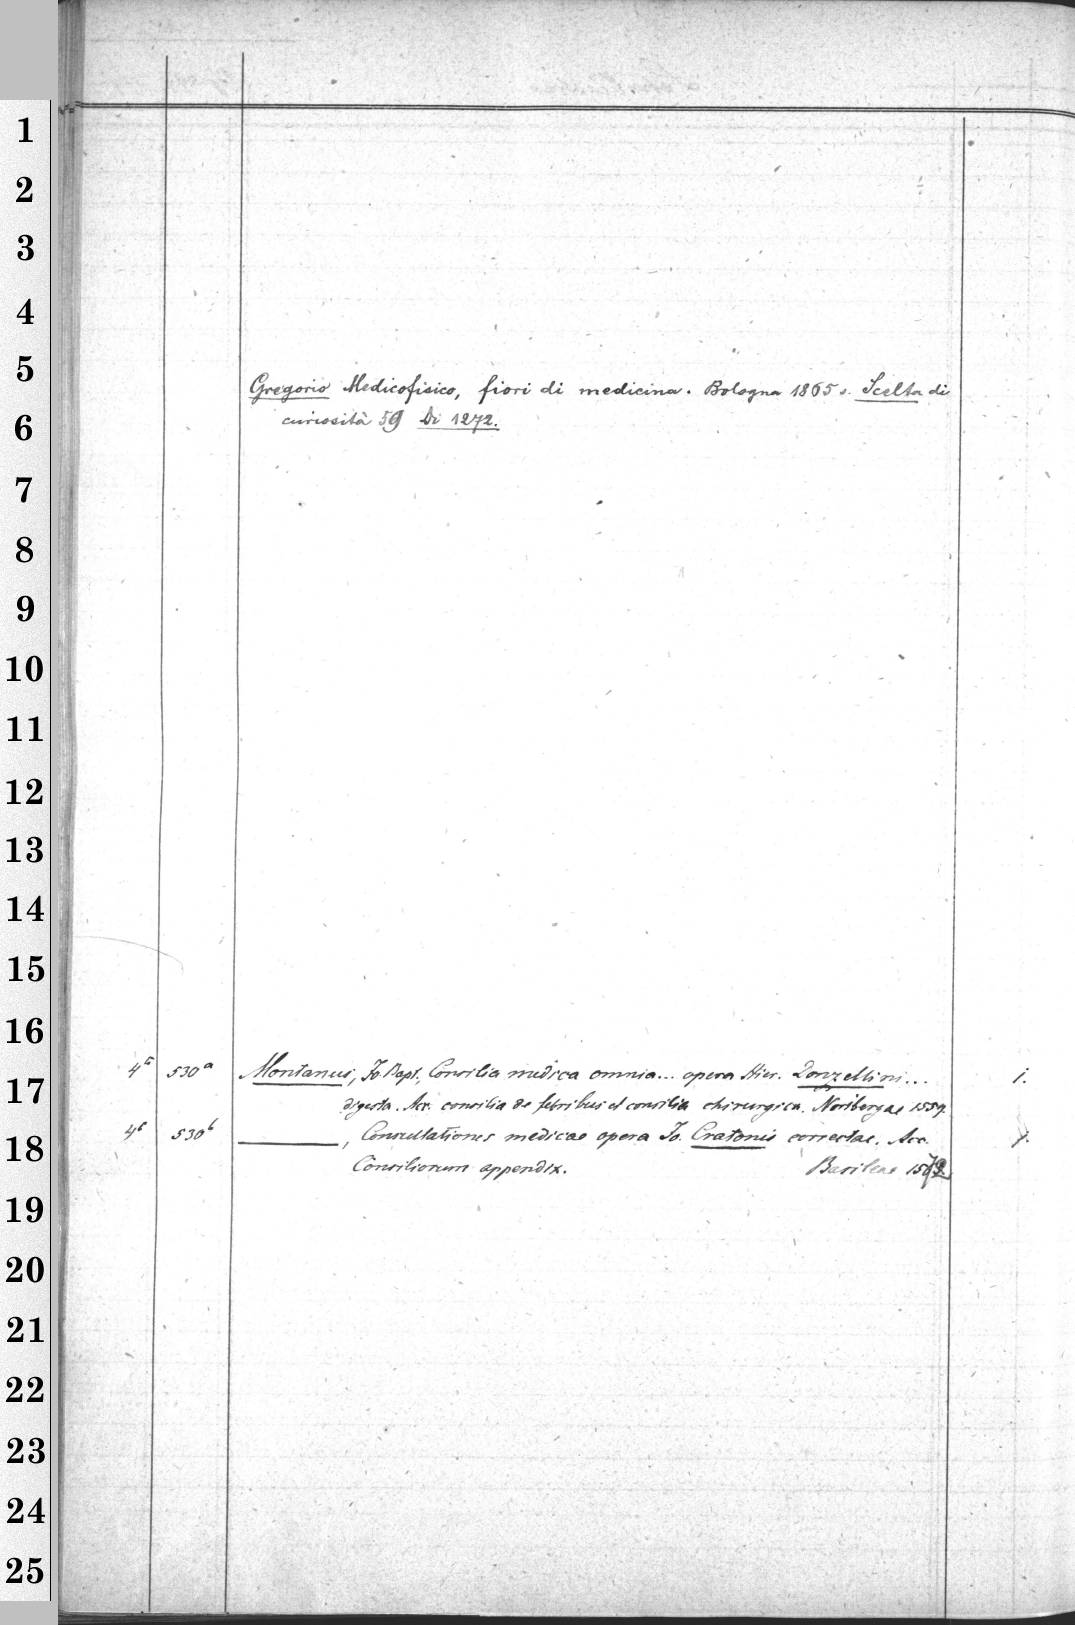 1
2
3
4
5
Gregorio Medicofisico, fiori di medicina. Bologna 1865 s. Scelta di
6
curiosità 59 Di 1272.
7
8
9
10
11
12
13
14
15
16
4° 530a Montanus, Jo Bapt, Consilia medica omnia... opera Hier. Donzellini... 1.
17
digesta. Acc. consilia de febribus et consilia chirurgica. Noribergae 1559
4° 530b ———, Consultationes medicae opera Jo. Cratonis correctae. Acc. 1.
18
Consiliorum appendix. Basileae 1572
19
20
21
22
23
24
25